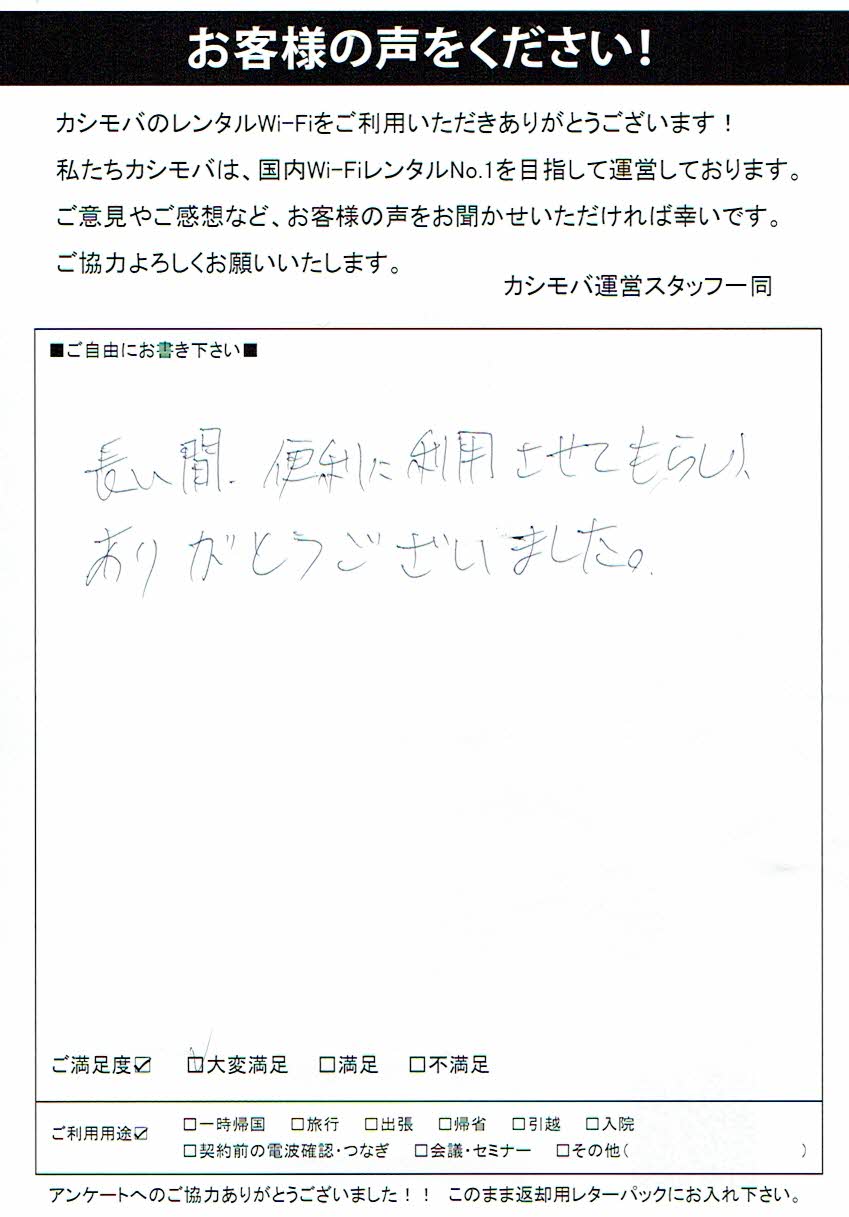 お客様の声をください！
カシモバのレンタルWi-Fiをご利用いただきありがとうございます！
私たちカシモバは、国内Wi-FiレンタルNo.1を目指して運営しております。
ご意見やご感想など、お客様の声をお聞かせいただければ幸いです。
ご協力よろしくお願いいたします。
カシモバ運営スタッフ一同
■ご自由にお書き下さい■
長い間、便利に利用させてもらい、
ありがとうございました。
ご満足度☑ ☑大変満足 □満足 □不満足
ご利用用途☑ □一時帰国 □旅行 □出張 □帰省 □引越 □入院
□契約前の電波確認・つなぎ □会議・セミナー □その他( )
アンケートへのご協力ありがとうございました！！ このまま返却用レターパックにお入れ下さい。